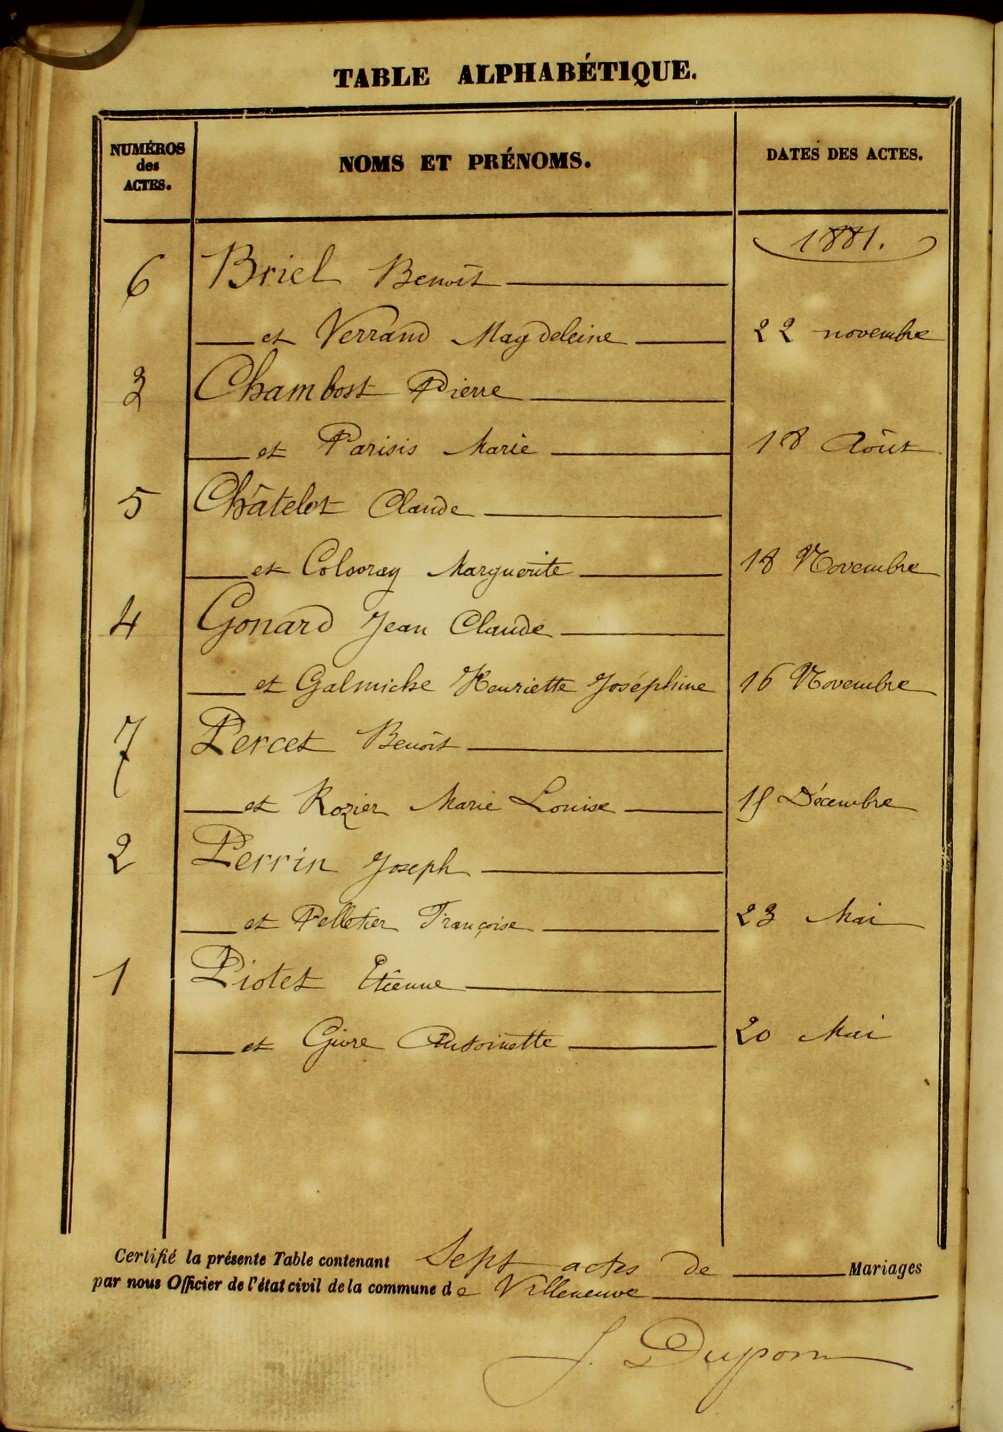 TABLE ALPHABÉTIQUE.
NUMÉROS des ACTES.
NOMS ET PRÉNOMS.
DATES DES ACTES.
1881.
6 Briel Benoît
et Verrand Magdeleine 22 novembre
3 Chambost Pierre
et Parisis Marie 18 Août
5 Châtelot Claude
et Marguerite 18 Novembre
4 Gonard Jean Claude
et Galmiche Henriette Joséphine 16 Novembre
7 Percet Benoît
et Rozier Marie Louise Décembre
2 Perrin Joseph
et Pelletier Françoise 23 Mai
1 Piotet Etienne
et Givre Antoinette 20 Mai
Certifié la présente Table contenant Sept actes de Mariages
par nous Officier de l'état civil de la commune de Villeneuve
J.